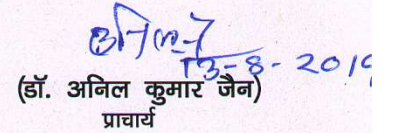 13-8-201
(डॉ. अनिल कुमार जैन)
प्राचार्य